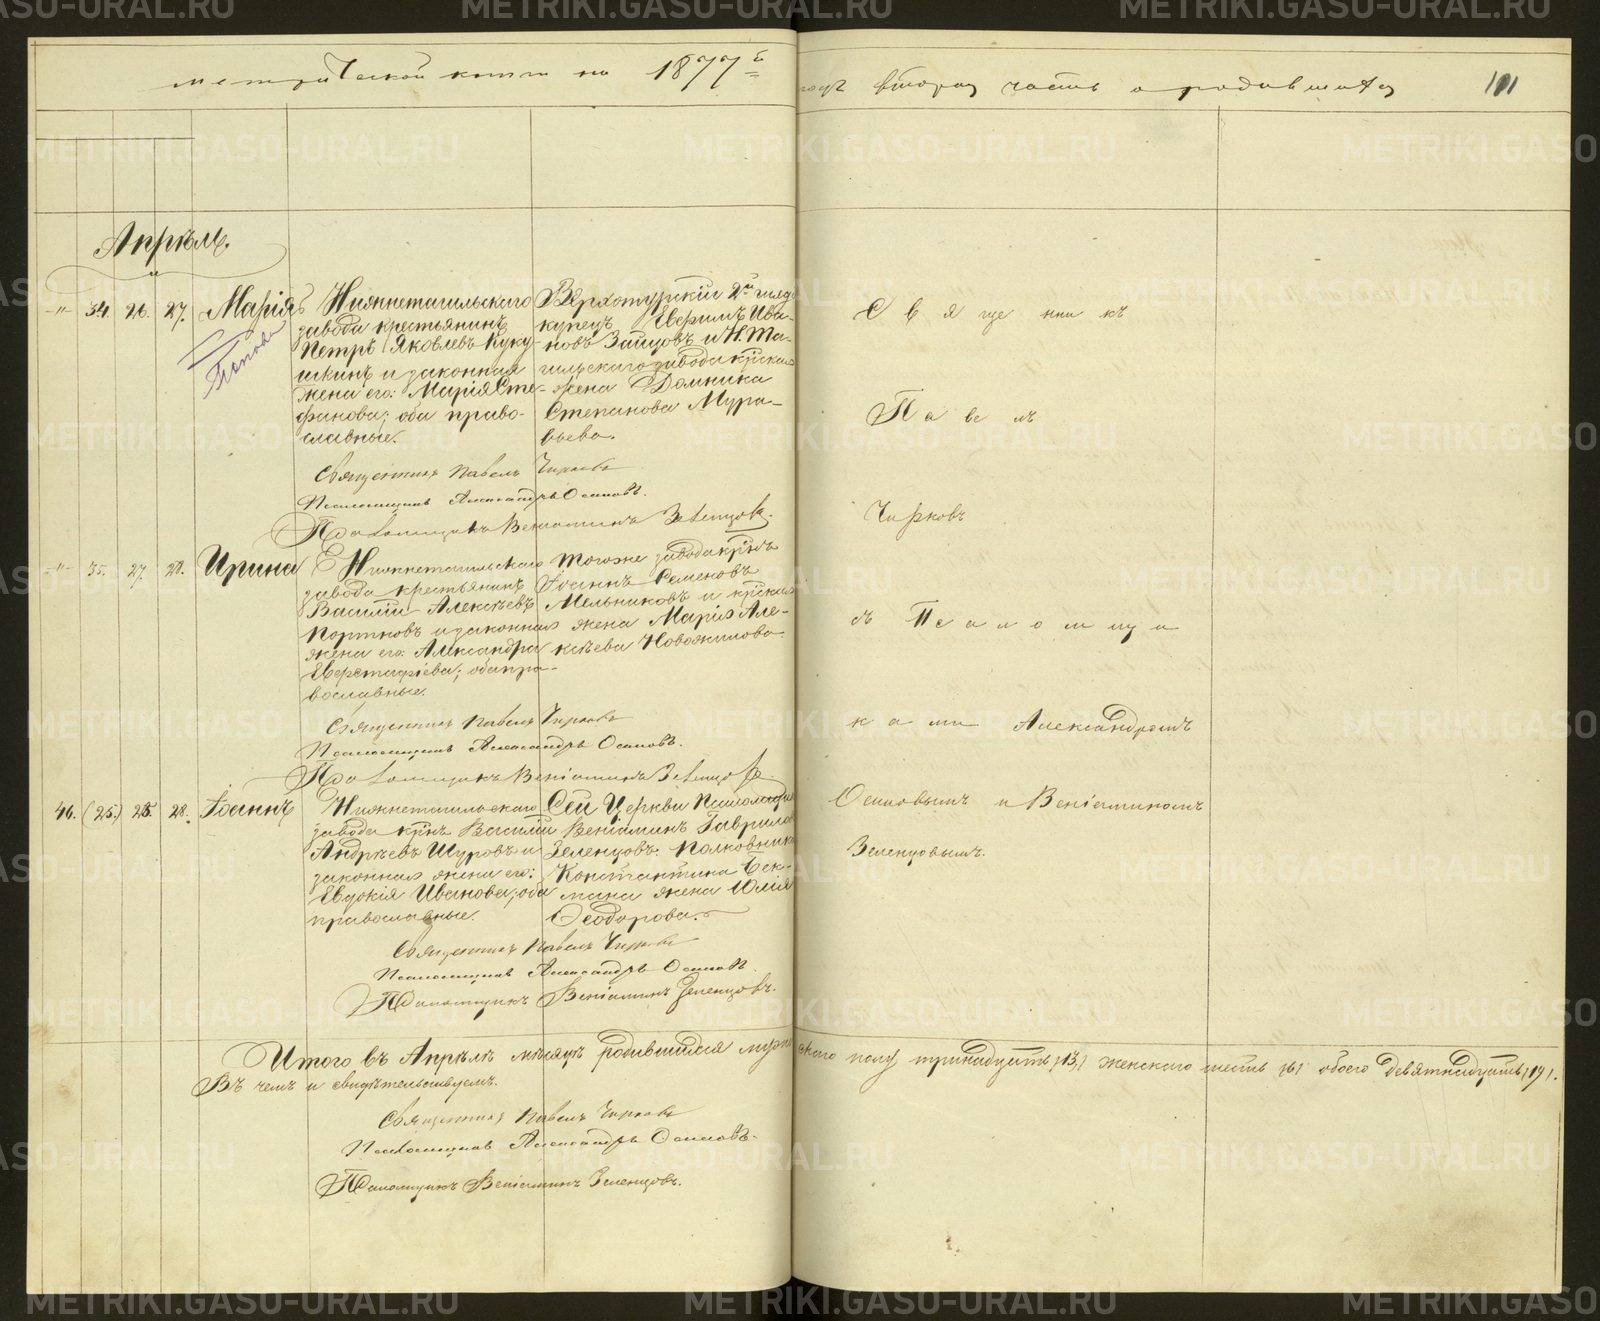 метрической книги на 1877й
годъ вторая часть о родившихся
101
Апрѣль.
"
34. 26. 27. Марія
Нижнетагильскаго
завода крестьянинъ
Петръ Яковлевъ Куку-
шкинъ и законная
жена его: Марія Сте-
фанова; оба право-
славные.
Верхотурскій 2й гильд.
купецъ Ива-
новъ Зайцовъ и Н. Та-
гильскаго завода кр̃ская
жена Домника
Степанова Мура-
вьева.
Священникъ Павелъ Чирковъ
Псаломщикъ Александръ Осиповъ.
Псаломщикъ Веніаминъ Зеленцовъ.
" 35. 27. 28. Ирина
Нижнетагильскаго
завода крестьянинъ
Василій Алексѣевъ
Портновъ и законная
жена его: Александра
Евстафіева; оба пра-
вославные.
тогоже завода кр̃нъ
Іоаннъ Семеновъ
Мельниковъ и кр̃ская
жена Марія Але-
ксѣева Новожилова
Священникъ Павелъ Чирковъ
Псаломщикъ Александръ Осиповъ.
Псаломщикъ Веніаминъ Зеленцовъ.
46. (25.) 28. Іоаннъ
Нижнетагильскаго
завода кр̃нъ Василій
Андреевъ Щуровъ и
законная жена его:
Евдокія Иванова; оба
православные.
Сей Церкви Псаломщикъ
Веніаминъ Гаврилов
Зеленцовъ. Полковника
Константина Бек-
мана жена Юлія
Ѳеодорова.
Священникъ Павелъ Чирковъ
Псаломщикъ Александръ Осиповъ.
Псаломщикъ Веніаминъ Зеленцовъ.
Священникъ
Павелъ
Чирковъ
съ Псаломщи
ками Александромъ
Осиповымъ и Веніаминомъ
Зеленцовымъ.
Итого въ Апрѣлѣ мѣсяцѣ родившихся мужескаго полу тринадцать /13/ женскаго шесть /6/ обоего девятнадцать /19/.
Въ чемъ и свидѣтельствуемъ.
Священникъ Павелъ Чирковъ
Псаломщикъ Александръ Осиповъ.
Псаломщикъ Веніаминъ Зеленцовъ.
METRIKI.GASO-URAL.RU